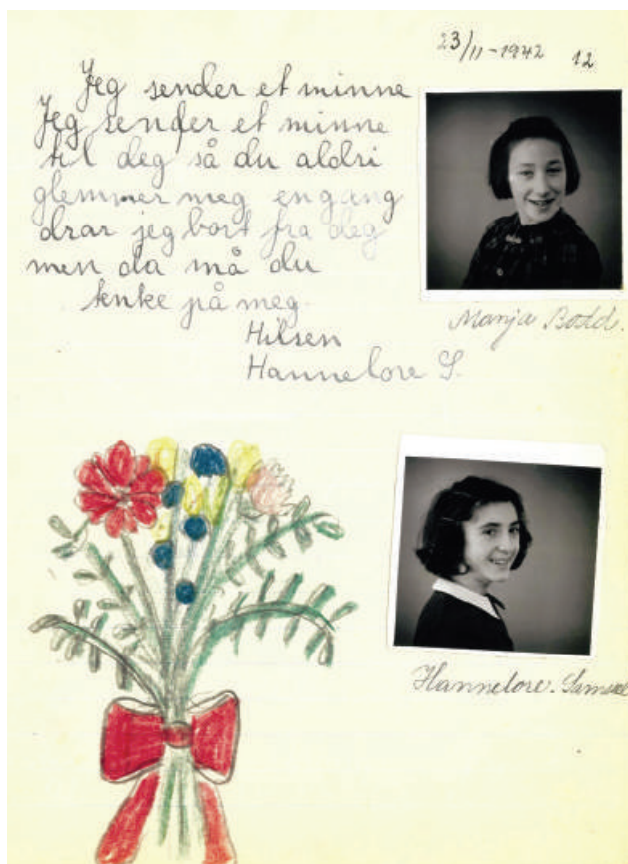 23/11-1942 12
Jeg sender et minne
Jeg sender et minne
til deg så du aldri
glemmer meg engang
drar jeg bort fra deg
men da må du
tenke på meg.
Hilsen
Hannelore S.
Manja
Hannelore.